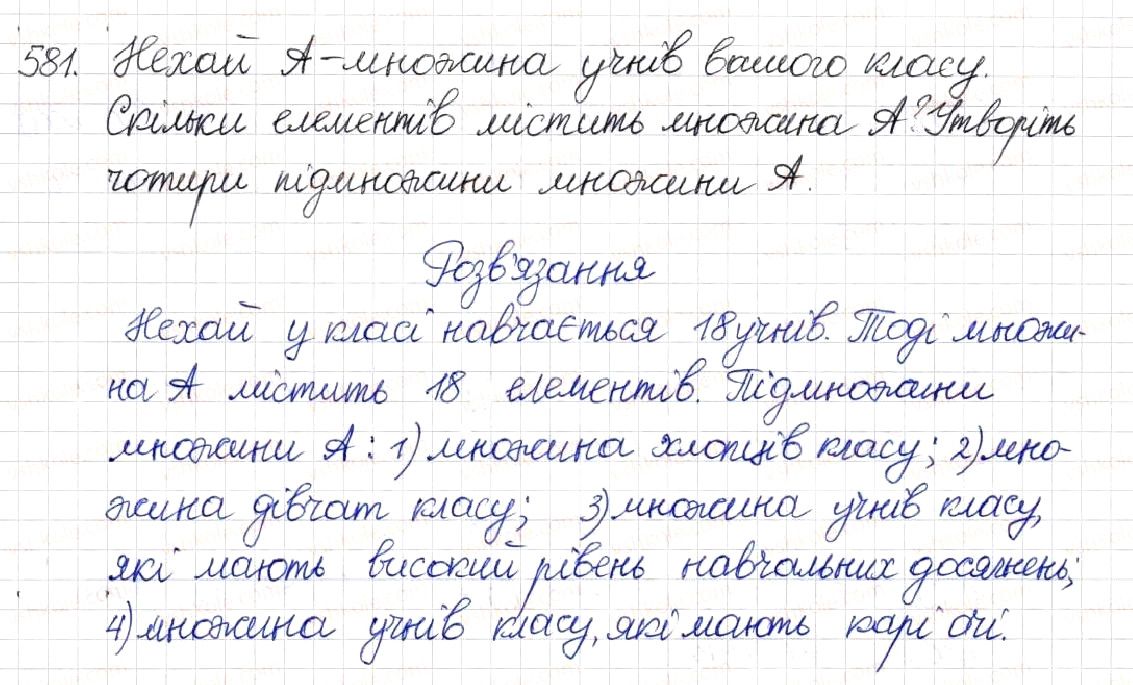 581. Нехай А – множина учнів вашого класу.
Скільки елементів містить множина А? Утворіть
чотири підмножини множини А.
Розв'язання
Нехай у класі навчається 18 учнів. Тоді множи-
на А містить 18 елементів. Підмножини
множини А: 1) множина хлопців класу; 2) мно-
жина дівчат класу; 3) множина учнів класу,
які мають високий рівень навчальних досягнень;
4) множина учнів класу, які мають карі очі.